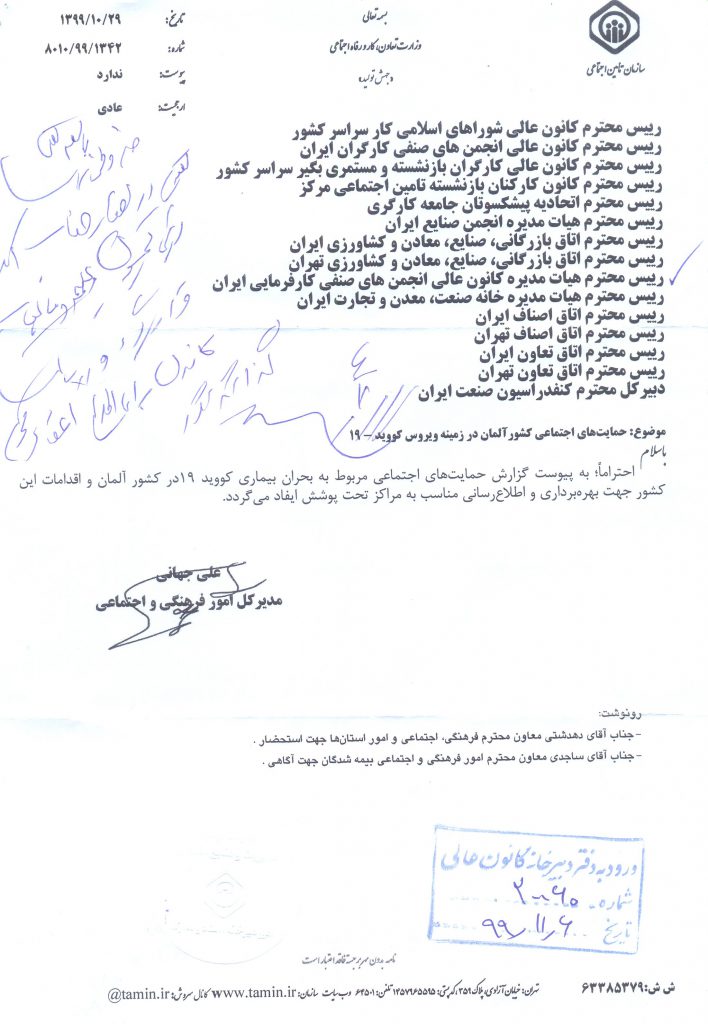 بسمه تعالی
وزارت تعاون، کار و رفاه اجتماعی
«جهش تولید»
سازمان تأمین اجتماعی
تاریخ: ۱۳۹۹/۱۰/۲۹
شماره: ۸۰۱۰/۹۹/۱۳۴۲
پیوست: ندارد
ارجحیت: عادی
رییس محترم کانون عالی شوراهای اسلامی کار سراسر کشور
رییس محترم کانون عالی انجمن های صنفی کارگران ایران
رییس محترم کانون عالی کارگران بازنشسته و مستمری بگیر سراسر کشور
رییس محترم کانون کارکنان بازنشسته تامین اجتماعی مرکز
رییس محترم اتحادیه پیشکسوتان جامعه کارگری
رییس محترم هیات مدیره انجمن صنایع ایران
رییس محترم اتاق بازرگانی، صنایع، معادن و کشاورزی ایران
رییس محترم اتاق بازرگانی، صنایع، معادن و کشاورزی تهران
رییس محترم هیات مدیره کانون عالی انجمن های صنفی کارفرمایی ایران
رییس محترم هیات مدیره خانه صنعت، معدن و تجارت ایران
رییس محترم اتاق اصناف ایران
رییس محترم اتاق اصناف تهران
رییس محترم اتاق تعاون ایران
رییس محترم اتاق تعاون تهران
دبیرکل محترم کنفدراسیون صنعت ایران
موضوع: حمایت‌های اجتماعی کشور آلمان در زمینه ویروس کووید – ۱۹
باسلام
احتراماً؛ به پیوست گزارش حمایت‌های اجتماعی مربوط به بحران بیماری کووید ۱۹در کشور آلمان و اقدامات این
کشور جهت بهره‌برداری و اطلاع‌رسانی مناسب به مراکز تحت پوشش ایفاد می‌گردد.
علی جهانی
مدیرکل امور فرهنگی و اجتماعی
رونوشت:
-جناب آقای دهدشتی معاون محترم فرهنگی، اجتماعی و امور استان‌ها جهت استحضار .
-جناب آقای ساجدی معاون محترم امور فرهنگی و اجتماعی بیمه شدگان جهت آگاهی .
ورود به دفتر دبیرخانه کانون عالی
شماره
تاریخ ۹۹/۱۱/۶
نامه بدون مهر برجسته فاقد اعتبار است
ش ش: ۶۳۳۸۵۳۷۹ تهران: خیابان آزادی، پلاک ۳۵۹، کدپستی: ۱۴۵۷۹۶۵۵۹۵ تلفن: ۶۴۵۰۱ وب سایت سازمان: www.tamin.ir کانال سروش: @tamin.ir